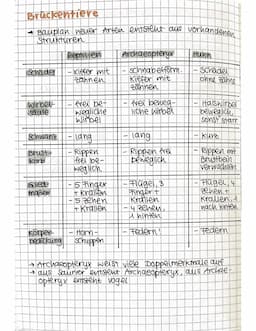 Brückentiere
→ Bauplan neuer Arten entsteht aus vorhandenen
Strukturen
Reptilien Archaeopteryx Huhn
Schädel - Kiefer mit Zähnen - Schnabelförm. Kiefer mit Zähnen - Schädel ohne Zähne
Wirbelsäule - frei bewegliche Wirbel - frei bewegliche Wirbel - Halswirbel beweglich, sonst starr
Schwanz - lang - lang - kurz
Brustkorb - Rippen frei beweglich - Rippen frei beweglich - Rippen mit Brustbein verwachsen
Gliedmaßen - 5 Finger + Krallen - 5 Zehen + Krallen - Flügel, 3 Finger + Krallen - 4 Zehen, 1 hinten - Flügel, 4 Zehen + Krallen, 1 nach hinten
Körperbedeckung - Hornschuppen - Federn - Federn
→ Archaeopteryx weist viele Doppelmerkmale auf
→ aus Saurier entsteht Archaeopteryx, aus Archaeopteryx entsteht Vogel